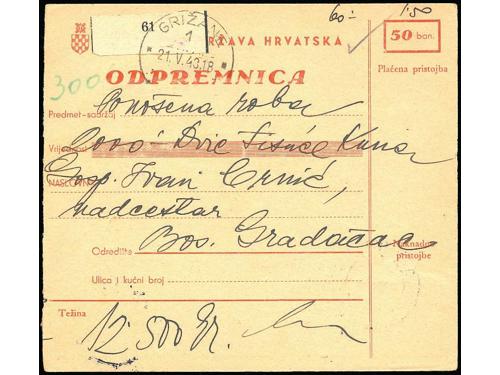 60- 1·50
61
GRIŽANE
1
21.V.43.18
DRŽAVA HRVATSKA
50 ban.
Plaćena pristojba
300
ODPREMNICA
Predmet-sadržaj Ponošena roba
Vrijednost 2000 Dvie Tisuće Kuna
NASLOVNIK Gosp. Ivan Crnić,
nadcestar
Bos. Gradačac
Odredište
Naknadne pristojbe
Ulica i kućni broj
Težina
12 500 Gr.